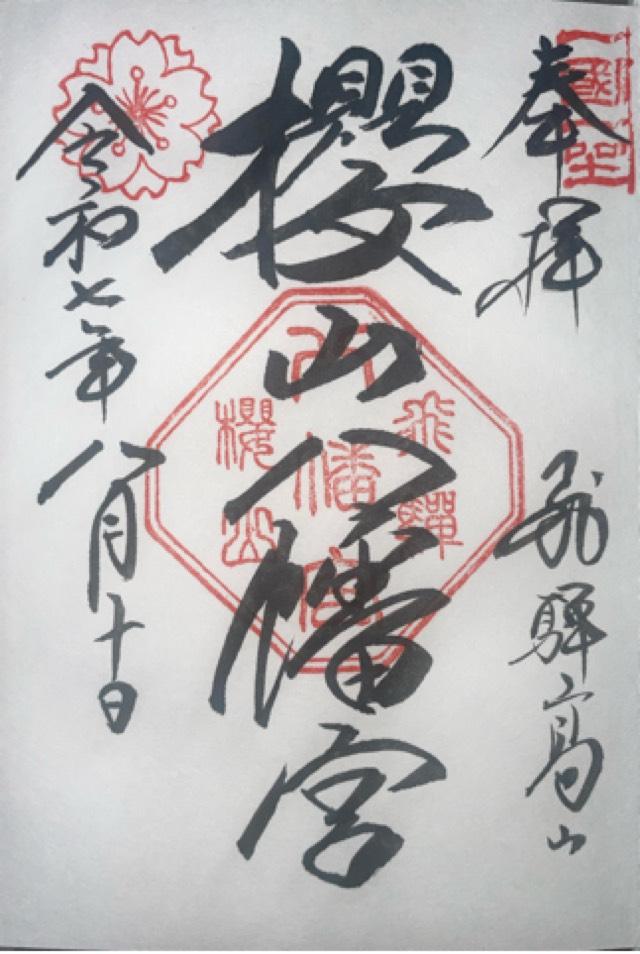 奉拝
飛騨高山
櫻山八幡宮
令和七年
八月十日
一國一社
飛騨
八幡宮
櫻山